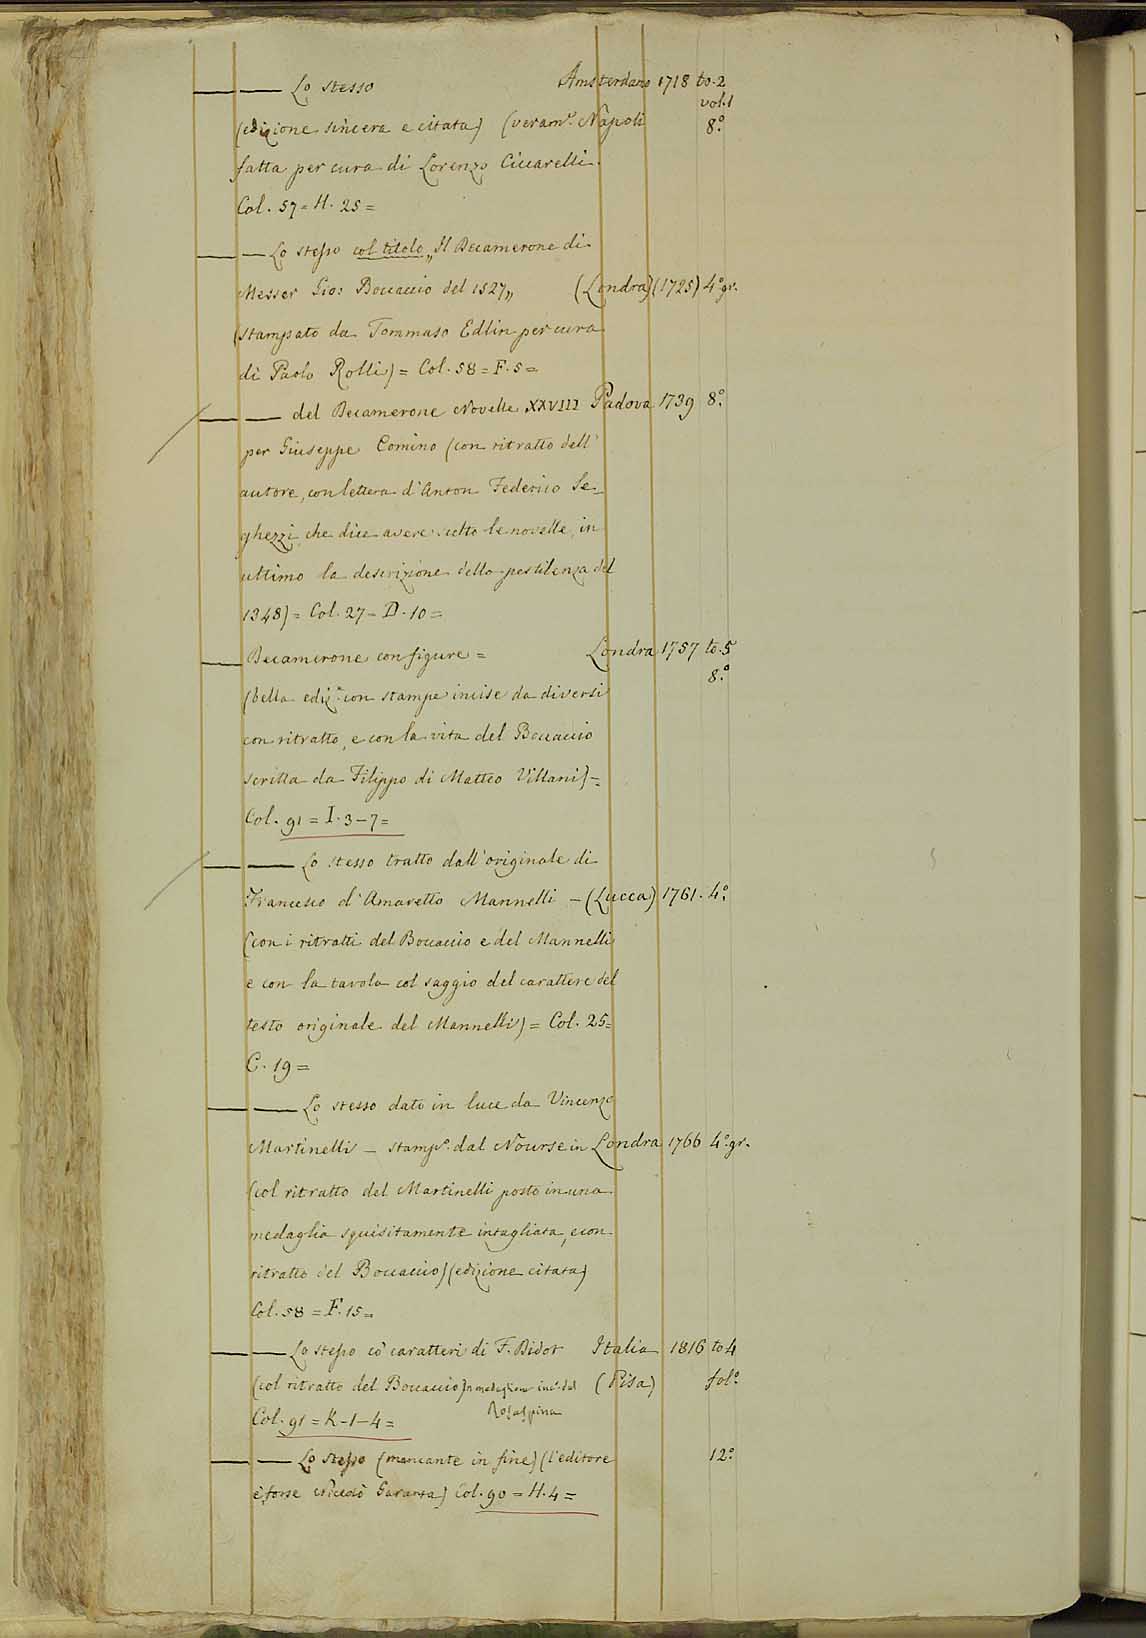 — — Lo stesso Amsterdamo 1718 to. 2
vol. 1
(edizione sincera e citata) (veram.e Napoli 8.°
fatta per cura di Lorenzo Ciccarelli.
Col. 57 = H. 25 =
— — Lo stesso col titolo „Il Decamerone di
Messer Gio: Boccaccio del 1527„ (Londra) (1725) 4.° gr.
(stampato da Tommaso Edlin per cura
di Paolo Rolli) = Col. 58 = F. 5 =
— — del Decamerone Novelle XXVIII Padova 1739 8.°
per Giuseppe Comino (con ritratto dell'
autore, con lettera d'Anton Federico Se-
ghezzi, che dice avere scelto le novelle, in
ultimo la descrizione della pestilenza del
1348) = Col. 27 = D. 10 =
— Decamerone con figure = Londra 1757 to. 5
8.°
(bella ediz.e con stampe incise da diversi
con ritratto, e con la vita del Boccaccio
scritta da Filippo di Matteo Villani) =
Col. 91 = I. 3-7 =
— — Lo stesso tratto dall'originale di
Francesco d'Amaretto Mannelli - (Lucca) 1761. 4.°
(con i ritratti del Boccaccio e del Mannelli
e con la tavola col saggio del carattere del
testo originale del Mannelli) = Col. 25 =
C. 19 =
— — Lo stesso dato in luce da Vincenzo
Martinelli - stamp.o dal Nourse in Londra 1766 4.° gr.
(col ritratto del Martinelli posto in una
medaglia squisitamente intagliata, e con
ritratto del Boccaccio) (edizione citata)
Col. 58 = F. 15 =
— — Lo stesso co' caratteri di F. Didot Italia 1816 to 4
(col ritratto del Boccaccio) in medaglione inc.o dal (Pisa) fol.°
Rosaspina
Col. 91 = K-1-4 =
— — Lo stesso (mancante in fine) (l'editore 12.°
è forse Garanta) Col. 90 = H. 4 =